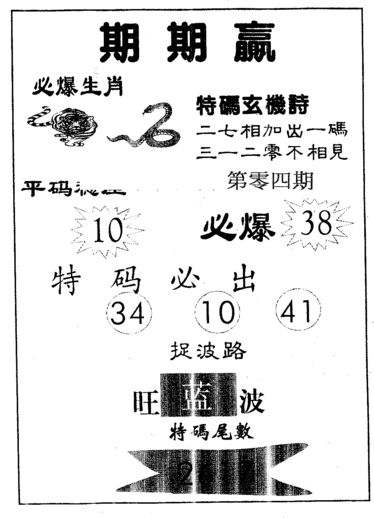 期期赢
必爆生肖
特碼玄機詩
二七相加出一碼
三一二零不相見
第零四期
平码
10
必爆 38
特码必出
34 10 41
捉波路
旺蓝波
特碼尾數
2